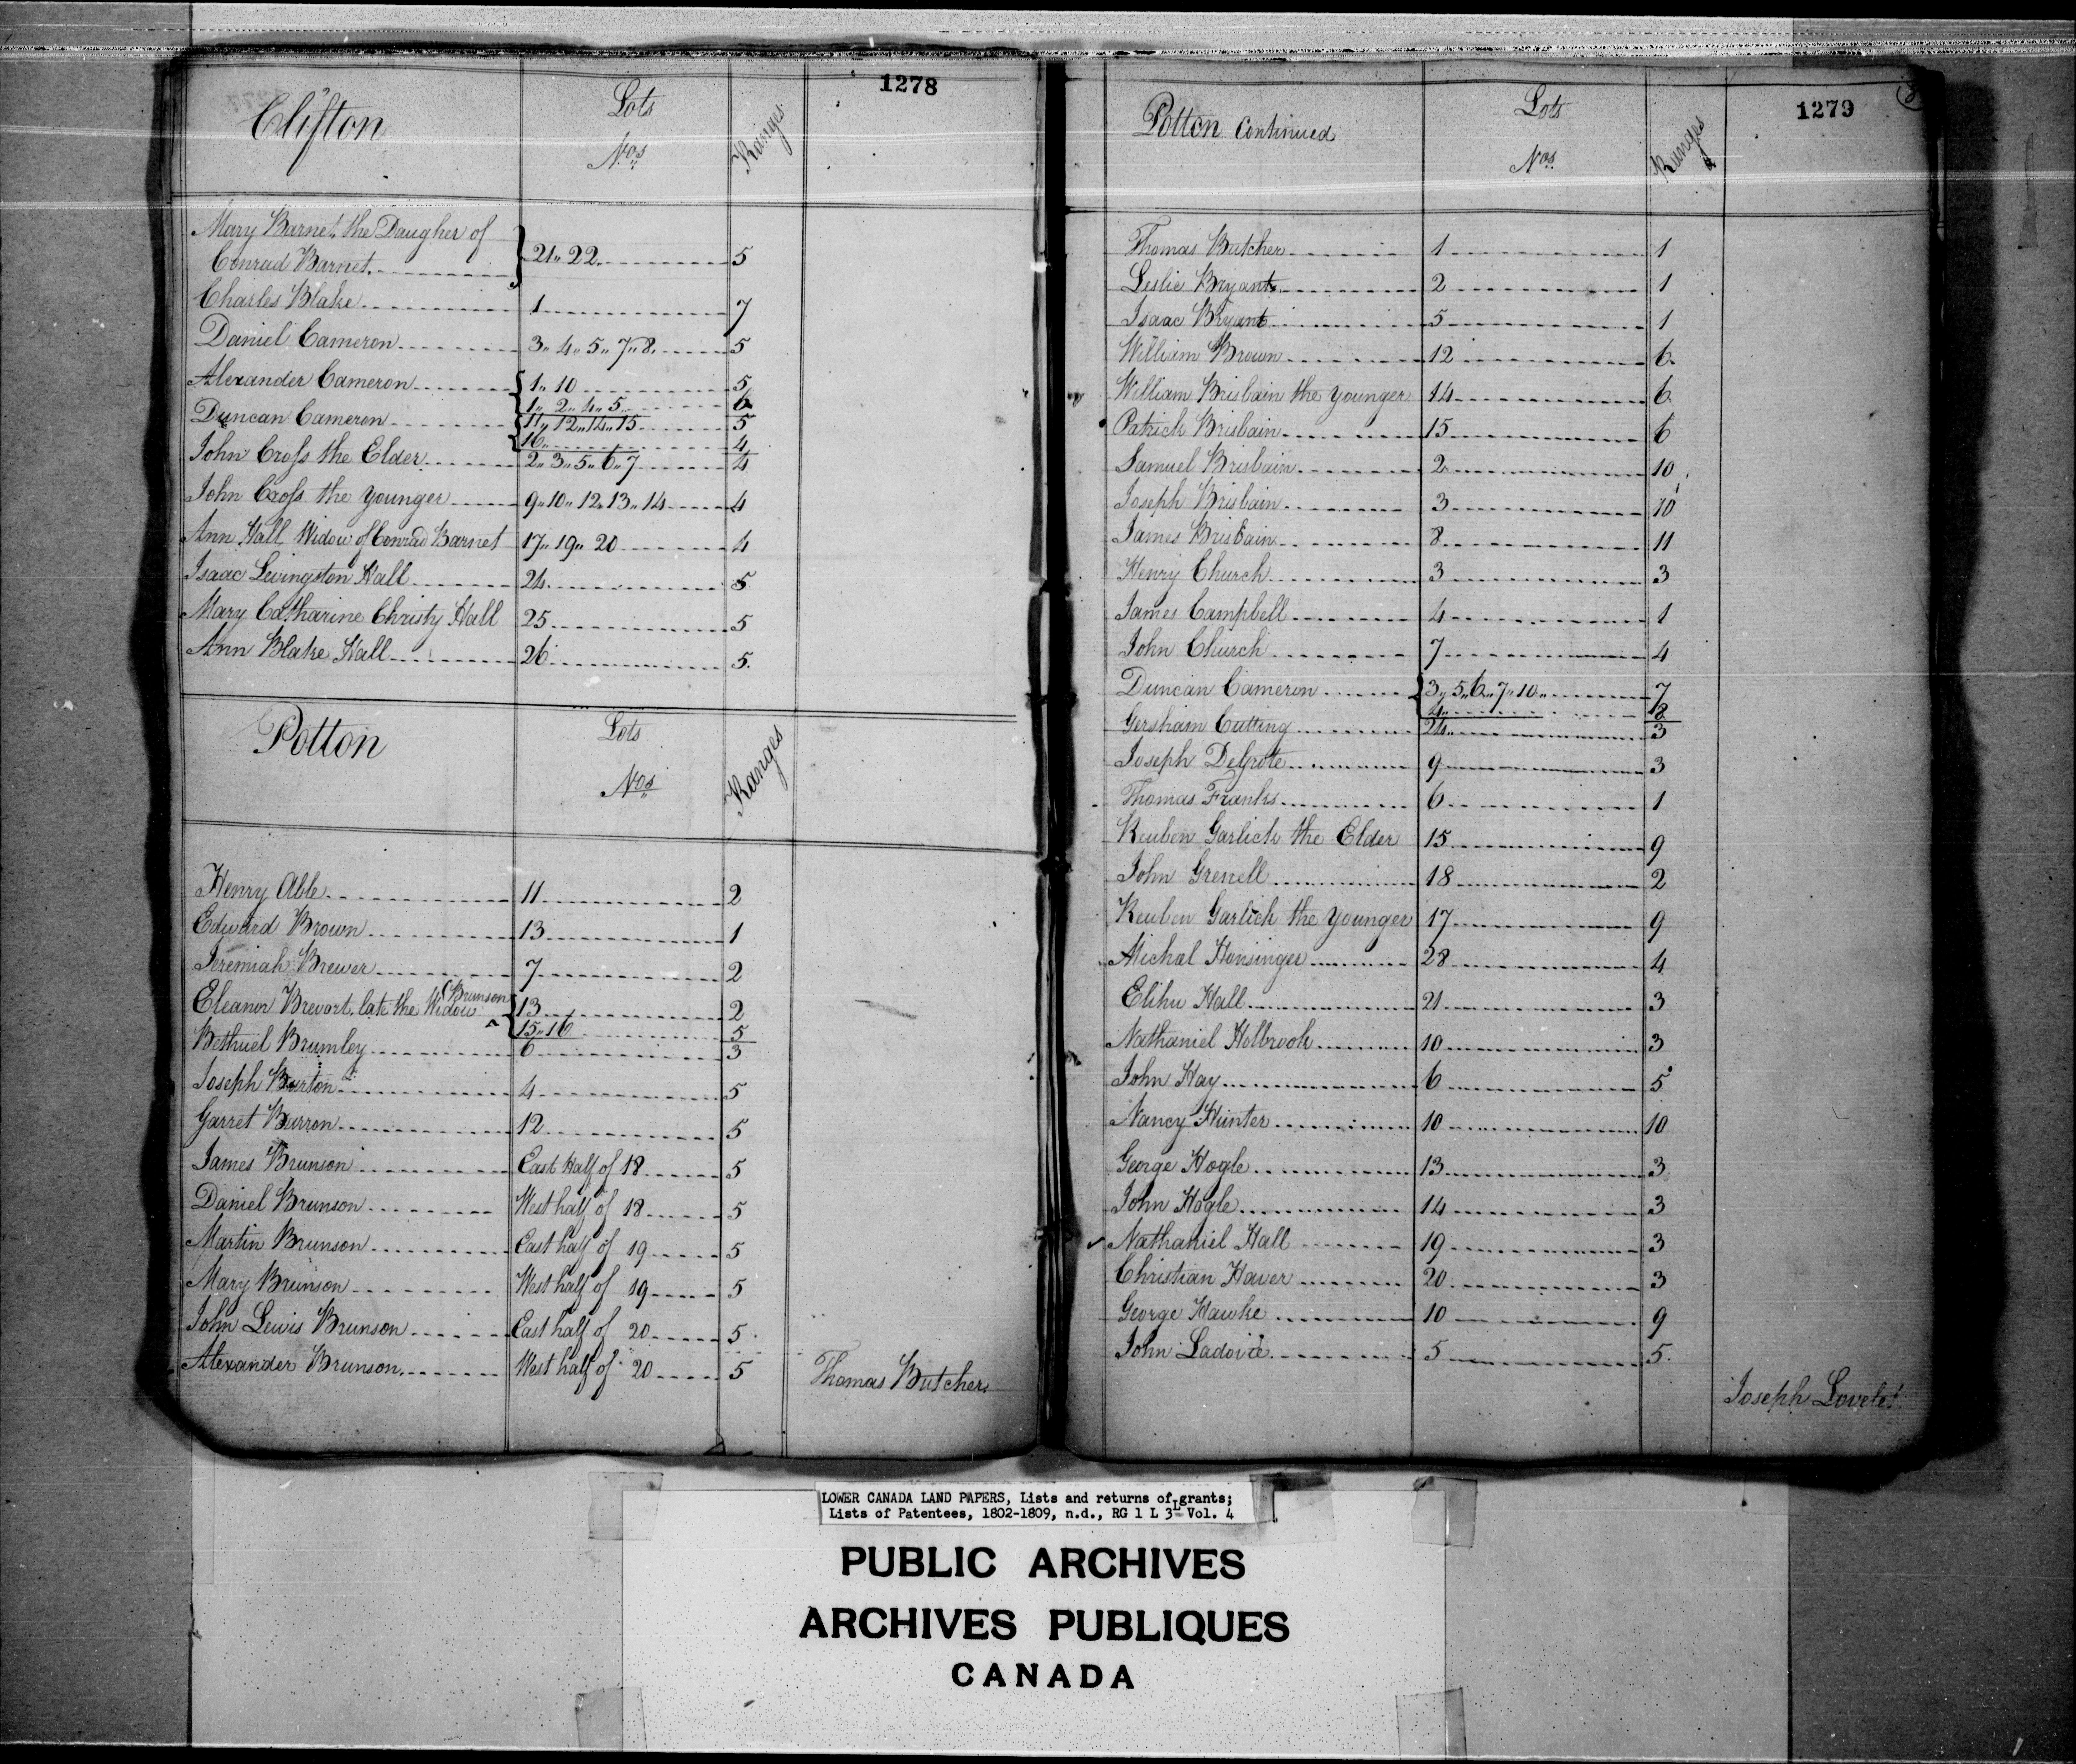 1278
Clifton Lots Nos. Ranges
Mary Barnet, the Daugher of
Conrad Barnet. 21,, 22. 5
Charles Blake 1 7
Daniel Cameron 3,, 4,, 5,, 7,, 8. 5
Alexander Cameron 1,, 10 5
1,, 2,, 4,, 5 6
Duncan Cameron 11,, 12,, 14,, 15 5
16,, 4
John Cross the Elder 2,, 3,, 5,, 6,, 7 4
John Cross the Younger 9,, 10,, 12,, 13,, 14 4
Ann Hall Widow of Conrad Barnet 17,, 19,, 20 4
Isaac Livingston Hall 24 5
Mary Catharine Christy Hall 25 5
Ann Blake Hall 26 5.
Potton Lots Nos. Ranges
Henry Able 11 2
Edward Brown 13 1
Jeremiah Brewer 7 2
Eleanor Brevort, late the Widow Brunson 13 2
15,, 16 5
Bethuel Brumley 6 3
Joseph Burton 4 5
Garret Barron 12 5
James Brunson East Half of 18 5
Daniel Brunson West half of 18 5
Martin Brunson East half of 19 5
Mary Brunson West half of 19 5
John Lewis Brunson East half of 20 5
Alexander Brunson West half of 20 5
Thomas Butcher
1279
Potton Continued Lots Nos. Ranges
Thomas Butcher 1 1
Leslie Bryant 2 1
Isaac Bryant 5 1
William Brown 12 6
William Brisbain the Younger 14 6
Patrick Brisbain 15 6
Samuel Brisbain 2 10
Joseph Brisbain 3 10
James Brisbain 8 11
Henry Church 3 3
James Campbell 4 1
John Church 7 4
Duncan Cameron 3,, 5,, 6,, 7,, 10,, 7
4,, 8
Gersham Cutting 24 3
Joseph DeGrote 9 3
Thomas Franks 6 1
Reuben Garlick the Elder 15 9
John Grenell 18 2
Reuben Garlick the Younger 17 9
Michal Hensinger 28 4
Elihu Hall 21 3
Nathaniel Holbrook 10 3
John Hay 6 5
Nancy Hunter 10 10
George Hogle 13 3
John Hogle 14 3
Nathaniel Hall 19 3
Christian Haver 20 3
George Hawke 10 9
John 5 5
Joseph
LOWER CANADA LAND PAPERS, Lists and returns of grants;
Lists of Patentees, 1802-1809, n.d., RG 1 L 3L Vol. 4
PUBLIC ARCHIVES
ARCHIVES PUBLIQUES
CANADA